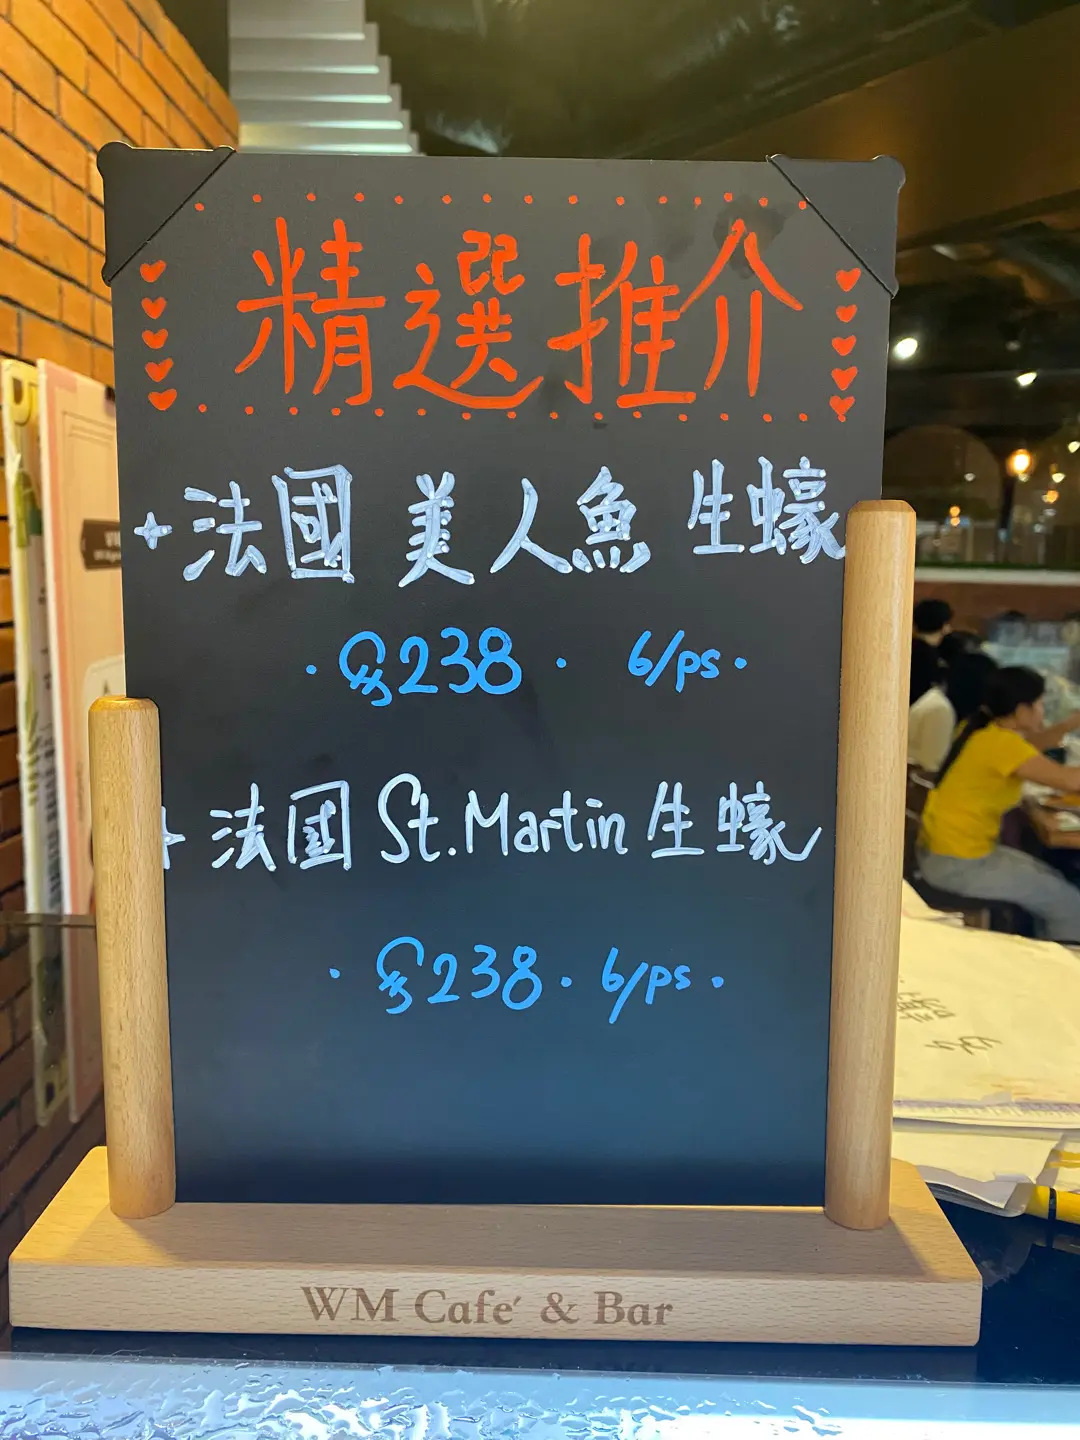 精選推介
+ 法國 美人魚 生蠔
· $238 · 6/ps ·
+ 法国 St. Martin 生蠔
· $238 · 6/ps ·
WM Cafe´ & Bar